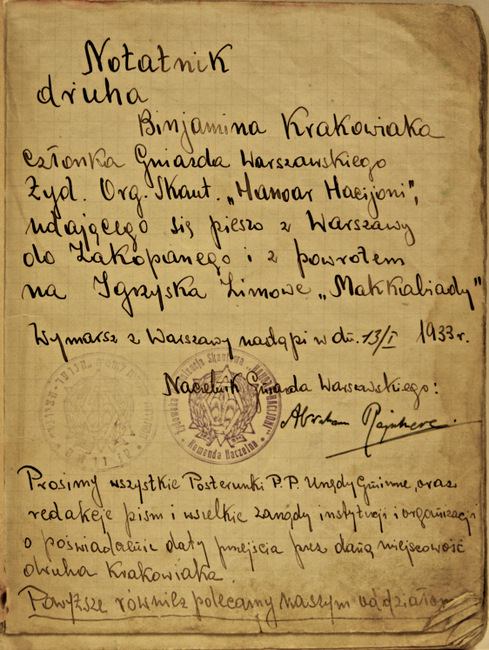 Notatnik
druha
Binjamina Krakowiaka
członka Gniazda Warszawskiego
Żyd. Org. Skaut. „Hanoar Hacijoni",
udającego się pieszo z Warszawy
do Zakopanego i z powrotem
na Igrzyska Zimowe „Makkabiady"
Wymarsz z Warszawy nastąpi w dn. 13/I 1933 r.
Naczelnik Gniazda Warszawskiego:
Abraham
Skautowa „HANOAR HACIJONI"
Komenda Naczelna
Prosimy wszystkie Posterunki P.P. Urzędy Gminne, oraz
redakcje pism i wszelkie zarządy instytucji i organizacji
o poświadczenie daty przejścia przez daną miejscowość
druha Krakowiaka.
Powyższe również polecamy naszym oddziałom